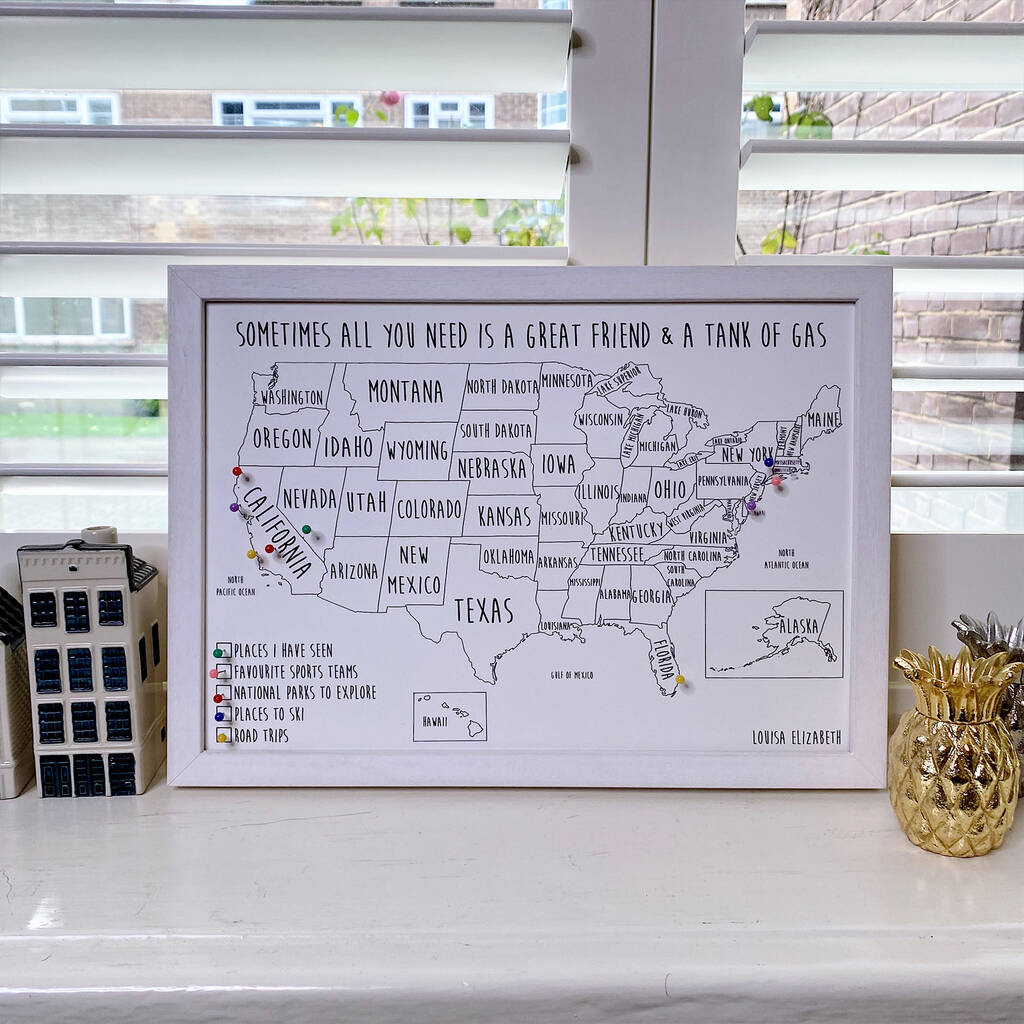 SOMETIMES ALL YOU NEED IS A GREAT FRIEND & A TANK OF GAS
WASHINGTON
MONTANA
NORTH DAKOTA
MINNESOTA
LAKE SUPERIOR
MAINE
OREGON
IDAHO
WYOMING
SOUTH DAKOTA
WISCONSIN
LAKE MICHIGAN
LAKE HURON
MICHIGAN
LAKE ONTARIO
NEW YORK
VERMONT
NEW HAMPSHIRE
MASSACHUSETTS
NEBRASKA
IOWA
LAKE ERIE
PENNSYLVANIA
CALIFORNIA
NEVADA
UTAH
COLORADO
KANSAS
MISSOURI
ILLINOIS
INDIANA
OHIO
WEST VIRGINIA
VIRGINIA
KENTUCKY
ARIZONA
NEW
MEXICO
OKLAHOMA
ARKANSAS
TENNESSEE
NORTH CAROLINA
SOUTH
CAROLINA
TEXAS
LOUISIANA
MISSISSIPPI
ALABAMA
GEORGIA
FLORIDA
NORTH
PACIFIC OCEAN
NORTH
ATLANTIC OCEAN
GULF OF MEXICO
ALASKA
HAWAII
PLACES I HAVE SEEN
FAVOURITE SPORTS TEAMS
NATIONAL PARKS TO EXPLORE
PLACES TO SKI
ROAD TRIPS
LOUISA ELIZABETH